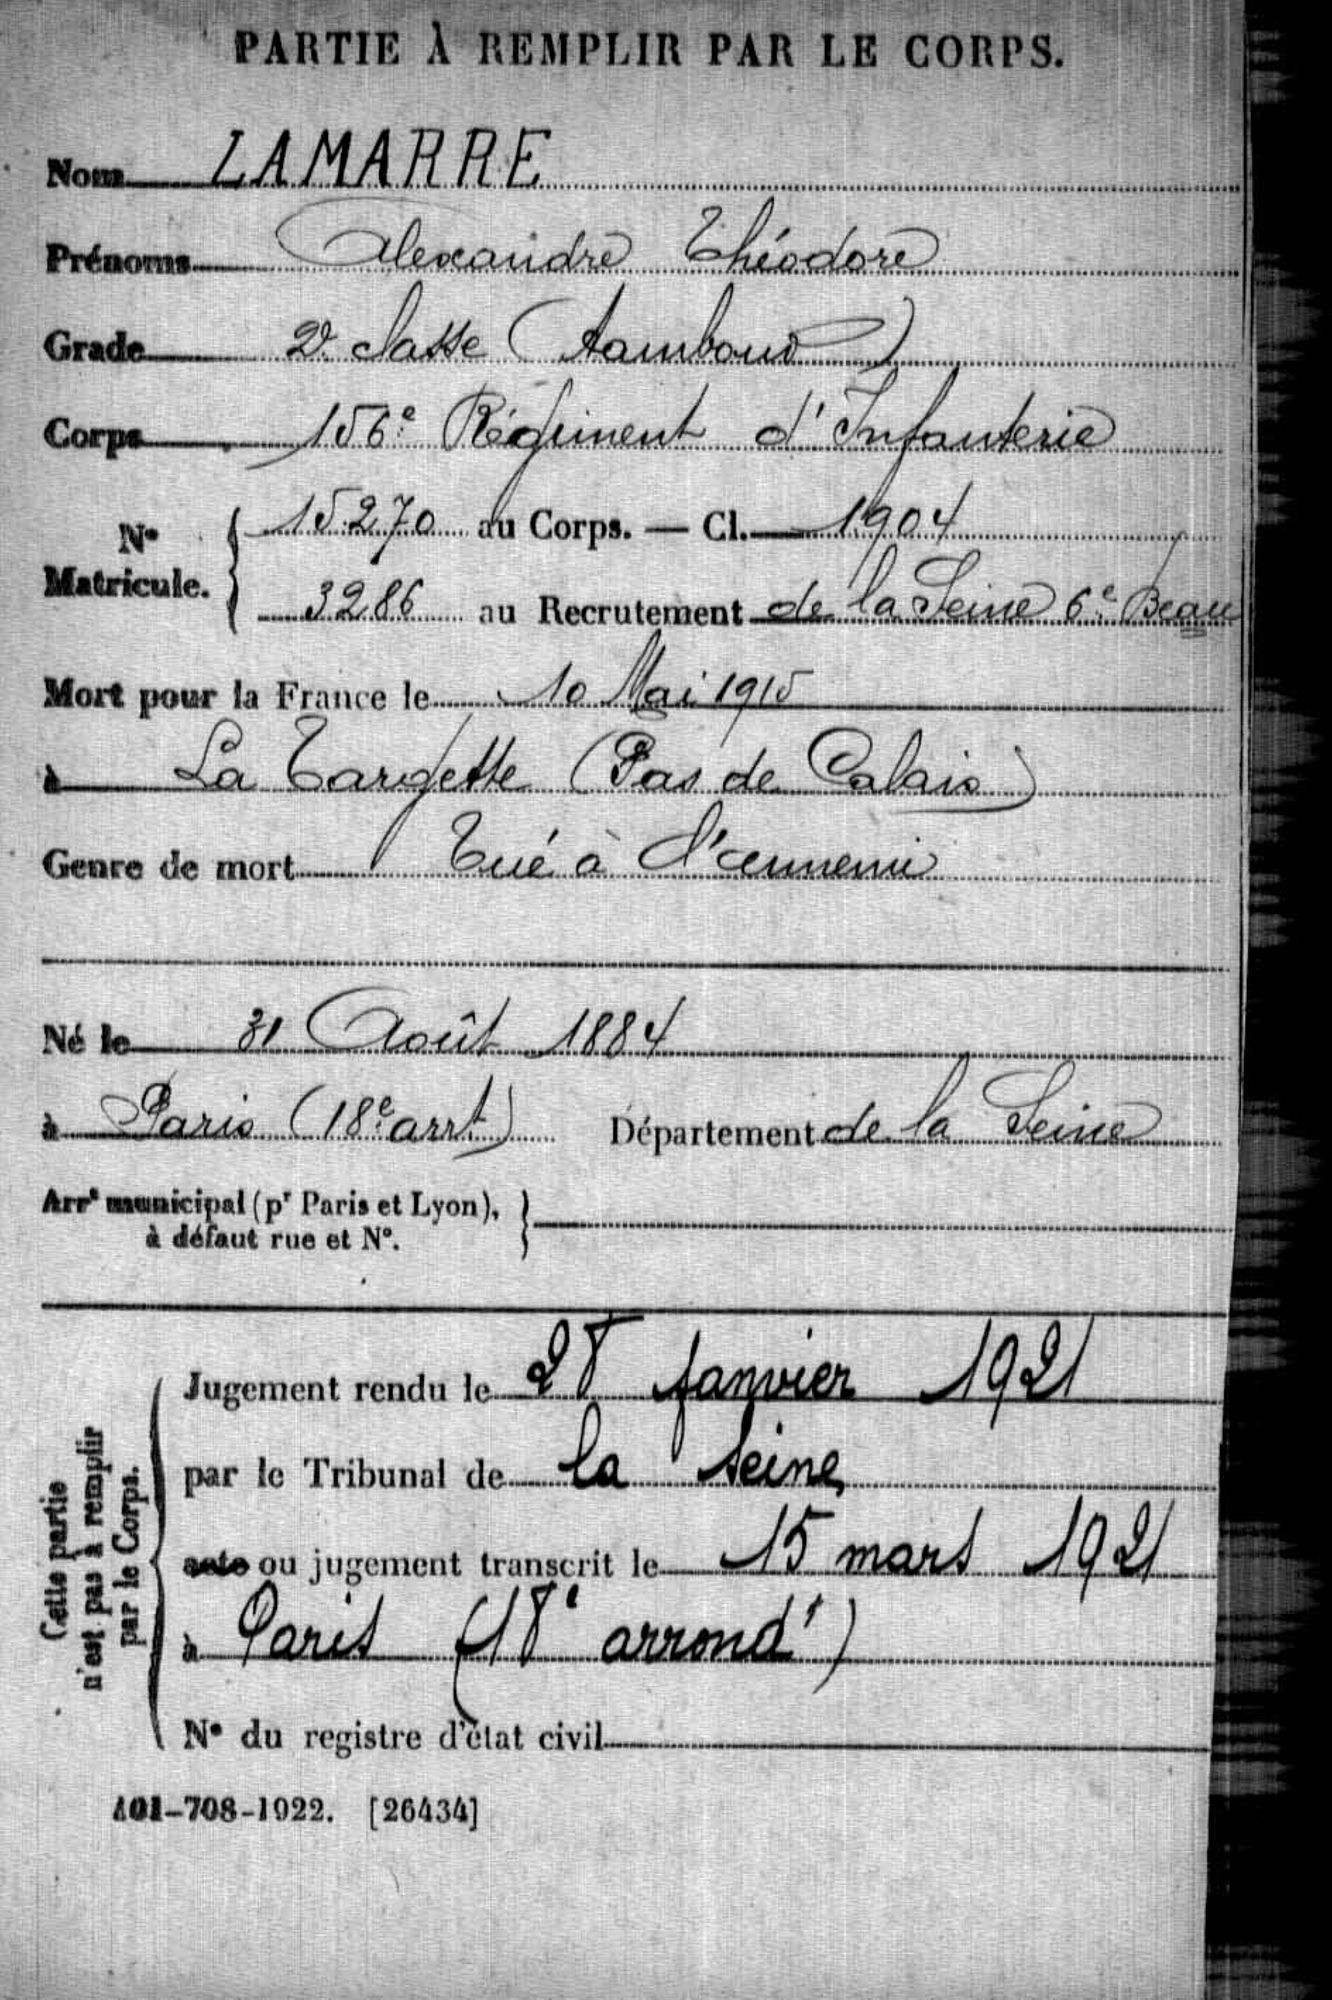 PARTIE À REMPLIR PAR LE CORPS.
Nom LAMARRE
Prénoms Alexandre Théodore
Grade 2e classe (tambour)
Corps 156e Régiment d'Infanterie
No Matricule. { 15.270 au Corps. — Cl. 1904
3286 au Recrutement de la Seine 6e Beau
Mort pour la France le 10 Mai 1915
à La Targette (Pas de Calais)
Genre de mort Tué à l'ennemi
Né le 31 Août 1884
à Paris (18e arrt) Département de la Seine
Arrt municipal (pr Paris et Lyon), à défaut rue et No. }
Cette partie n'est pas à remplir par le Corps.
Jugement rendu le 28 Janvier 1921
par le Tribunal de la Seine
acte ou jugement transcrit le 15 mars 1921
à Paris (18e arrondt)
No du registre d'état civil
101-708-1922. [26434]